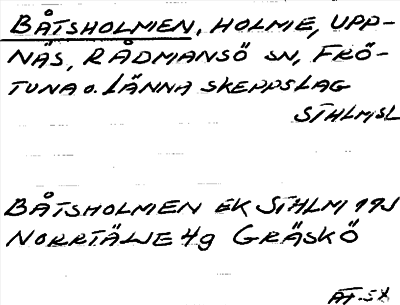 BÅTSHOLMEN, HOLME, UPP-
NÄS, RÅDMANSÖ SN, FRÖ-
TUNA O. LÄNNA SKEPPSLAG
STHLMSL
BÅTSHOLMEN EK STHLM 19J
NORRTÄLJE 4g GRÄSKÖ
ÅT-58